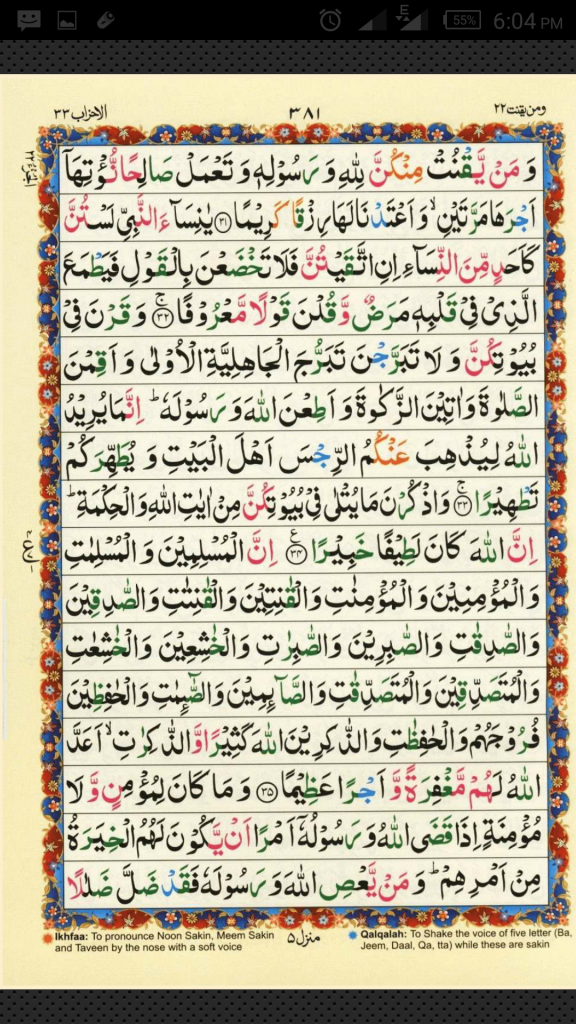 E
55%
6:04 PM
ومن يقنت ٢٢
٣٨١
الاحزاب ٣٣
وَ مَنْ يَّقْنُتْ مِنْكُنَّ لِلّٰهِ وَ رَسُوْلِهٖ وَ تَعْمَلْ صَالِحًا نُّؤْتِهَاۤ
اَجْرَهَا مَرَّتَيْنِ ۙ وَ اَعْتَدْنَا لَهَا رِزْقًا كَرِيْمًا ﴿۳۱﴾ يٰنِسَآءَ النَّبِيِّ لَسْتُنَّ
كَاَحَدٍ مِّنَ النِّسَآءِ اِنِ اتَّقَيْتُنَّ فَلَا تَخْضَعْنَ بِالْقَوْلِ فَيَطْمَعَ
الَّذِيْ فِيْ قَلْبِهٖ مَرَضٌ وَّقُلْنَ قَوْلًا مَّعْرُوْفًا ﴿۳۲﴾ۚ وَ قَرْنَ فِيْ
بُيُوْتِكُنَّ وَ لَا تَبَرَّجْنَ تَبَرُّجَ الْجَاهِلِيَّةِ الْاُوْلٰى وَ اَقِمْنَ
الصَّلٰوةَ وَاٰتِيْنَ الزَّكٰوةَ وَ اَطِعْنَ اللّٰهَ وَ رَسُوْلَهٗ ؕ اِنَّمَا يُرِيْدُ
اللّٰهُ لِيُذْهِبَ عَنْكُمُ الرِّجْسَ اَهْلَ الْبَيْتِ وَ يُطَهِّرَكُمْ
تَطْهِيْرًا ﴿۳۳﴾ۚ وَاذْكُرْنَ مَا يُتْلٰى فِيْ بُيُوْتِكُنَّ مِنْ اٰيٰتِ اللّٰهِ وَالْحِكْمَةِ ؕ
اِنَّ اللّٰهَ كَانَ لَطِيْفًا خَبِيْرًا ﴿۳۴﴾ع اِنَّ الْمُسْلِمِيْنَ وَ الْمُسْلِمٰتِ
وَالْمُؤْمِنِيْنَ وَالْمُؤْمِنٰتِ وَالْقٰنِتِيْنَ وَالْقٰنِتٰتِ وَالصّٰدِقِيْنَ
وَالصّٰدِقٰتِ وَالصّٰبِرِيْنَ وَالصّٰبِرٰتِ وَالْخٰشِعِيْنَ وَالْخٰشِعٰتِ
وَالْمُتَصَدِّقِيْنَ وَالْمُتَصَدِّقٰتِ وَالصَّآىِٕمِيْنَ وَالصّٰٓىِٕمٰتِ وَالْحٰفِظِيْنَ
فُرُوْجَهُمْ وَالْحٰفِظٰتِ وَالذّٰكِرِيْنَ اللّٰهَ كَثِيْرًا وَّالذّٰكِرٰتِ ۙ اَعَدَّ
اللّٰهُ لَهُمْ مَّغْفِرَةً وَّ اَجْرًا عَظِيْمًا ﴿۳۵﴾ وَ مَا كَانَ لِمُؤْمِنٍ وَّ لَا
مُؤْمِنَةٍ اِذَا قَضَى اللّٰهُ وَ رَسُوْلُهٗۤ اَمْرًا اَنْ يَّكُوْنَ لَهُمُ الْخِيَرَةُ
مِنْ اَمْرِهِمْ ؕ وَ مَنْ يَّعْصِ اللّٰهَ وَ رَسُوْلَهٗ فَقَدْ ضَلَّ ضَلٰلًا
Ikhfaa: To pronounce Noon Sakin, Meem Sakin
and Taveen by the nose with a soft voice
منزل ۵
Qalqalah: To Shake the voice of five letter (Ba,
Jeem, Daal, Qa, tta) while these are sakin